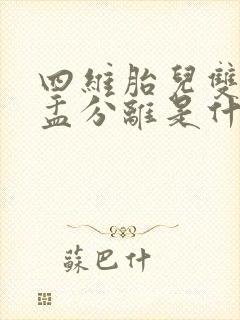 四維胎兒雙
盂分離是什
蘇巴什